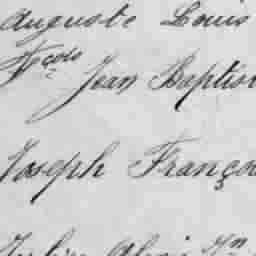 Auguste Louis
Fçois Jean Baptis
Joseph Franço